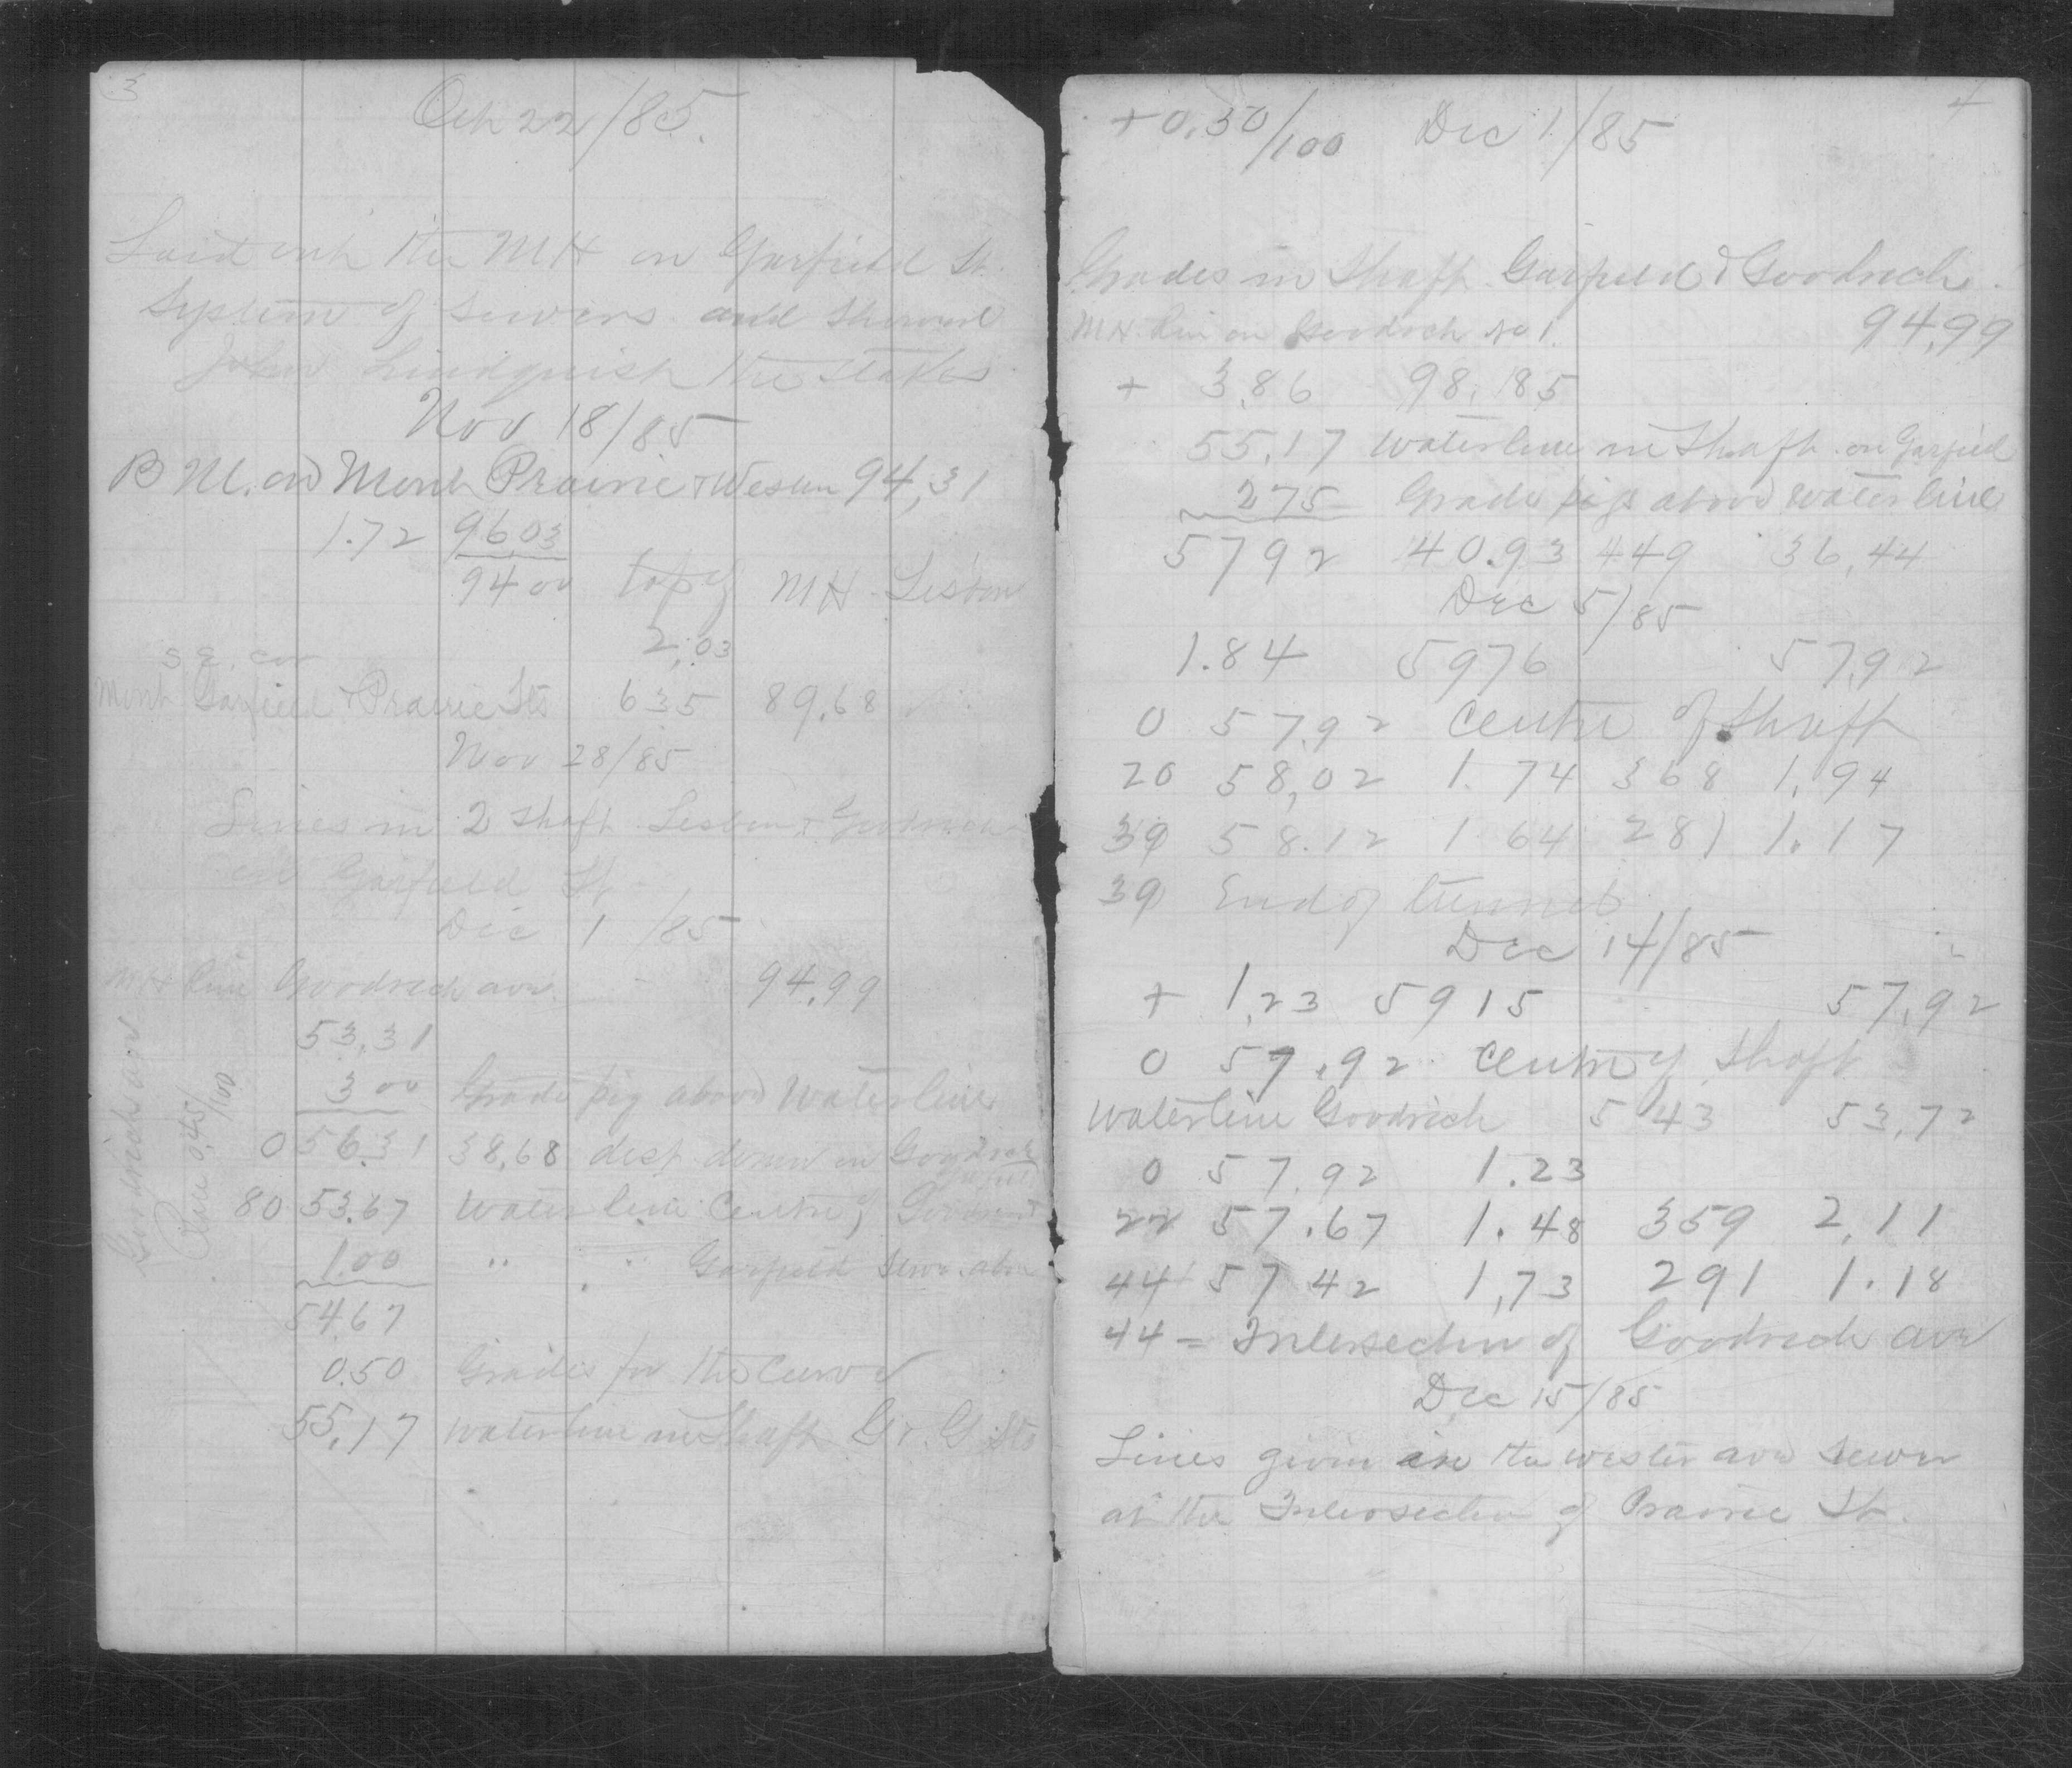 3
Oct 22/85.
Laid out the MH on Garfield St.
System of Sewers and showed
John Lindquist the stakes
Nov 18/85
B M. on Mont Prairie & Western 94,31
1.72 96.03
94 00 top of MH Lisbon
2,03
S E. cor
Mont Garfield & Prairie Sts 635 89.68
Nov 28/85
Lines in 2 shaft Lisbon & Goodrich
on Garfield St
Dec 1 /85
MH Rim Goodrich ave. 94.99
53.31
3 00 Grade peg above Waterline
0 56.31 38.68 dist down in Goodrich
80 53.67 Water line Centre of Goodrich
1.00 " " Garfield Sewer above
54.67
0.50 Grades for the Curve
55.17 waterline in Shaft G & G Sts
Goodrich ave
0.45/100
4
+0.50/100 Dec 1/85
Grades in Shaft Garfield & Goodrich.
MH Rim on Goodrich No 1. 94.99
+ 3.86 98.85
55.17 Waterline in Shaft on Garfield
275 Grade peg above Water line
5792 40.93 449 36.44
Dec 5/85
1.84 5976 57.92
0 57.92 Centre of Shaft
20 58,02 1.74 368 1.94
39 58.12 1 64 281 1.17
39 End of tunnel
Dec 14/85
+ 1.23 5915 57.92
0 57.92 Centre of Shaft
Waterline Goodrich 5 43 53.72
0 57.92 1.23
22 57.67 1.48 359 2.11
44 57 42 1,73 291 1.18
44 = Intersection of Goodrich ave
Dec 15/85
Lines given in the wester ave sewer
at the Intersection of Prairie St.